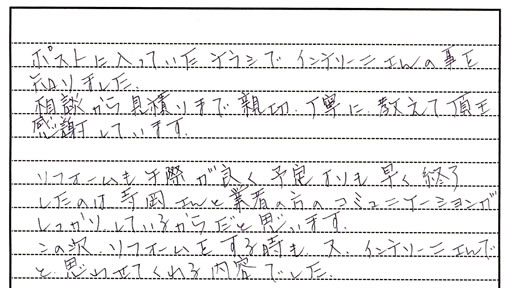 ポストに入っていたチラシでインテリーニさんの事を
知りました。
相談から見積りまで親切、丁寧に教えて頂き
感謝しています。
リフォームも手際が良く予定よりも早く終了
したのは寺岡さんと業者の方のコミュニケーションが
しっかりしているからだと思います。
この次リフォームをする時も又、インテリーニさんで
と思わせてくれる内容でした。